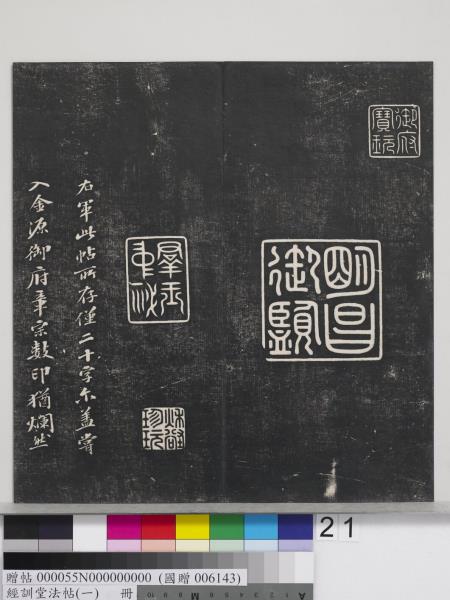 御府
寶玩
明昌
御覽
群玉
中祕
珍玩
右軍此帖所存僅二十字尔蓋嘗
入金源御府章宗數印猶爛然
21
贈帖 000055N000000000 (國贈 006143)
經訓堂法帖(一) 冊